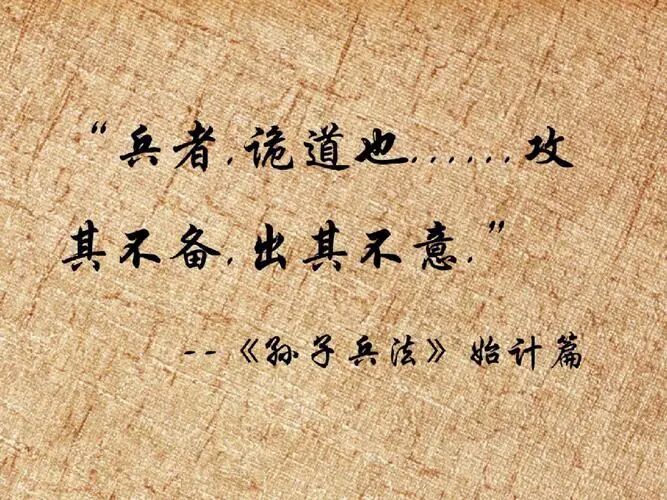 “兵者,诡道也,,,,,,攻
其不备,出其不意,”
--《孙子兵法》始计篇